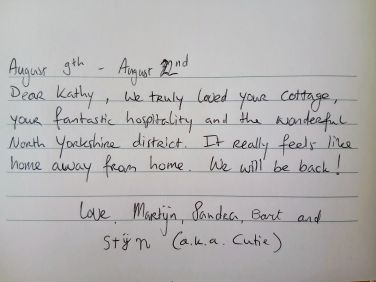 August 9th - August 22nd
Dear Kathy, We truly loved your cottage,
your fantastic hospitality and the wonderful
North Yorkshire district. It really feels like
home away from home. We will be back!
Love, Martijn, Sandra, Bart and
Stijn (a.k.a. Cutie)